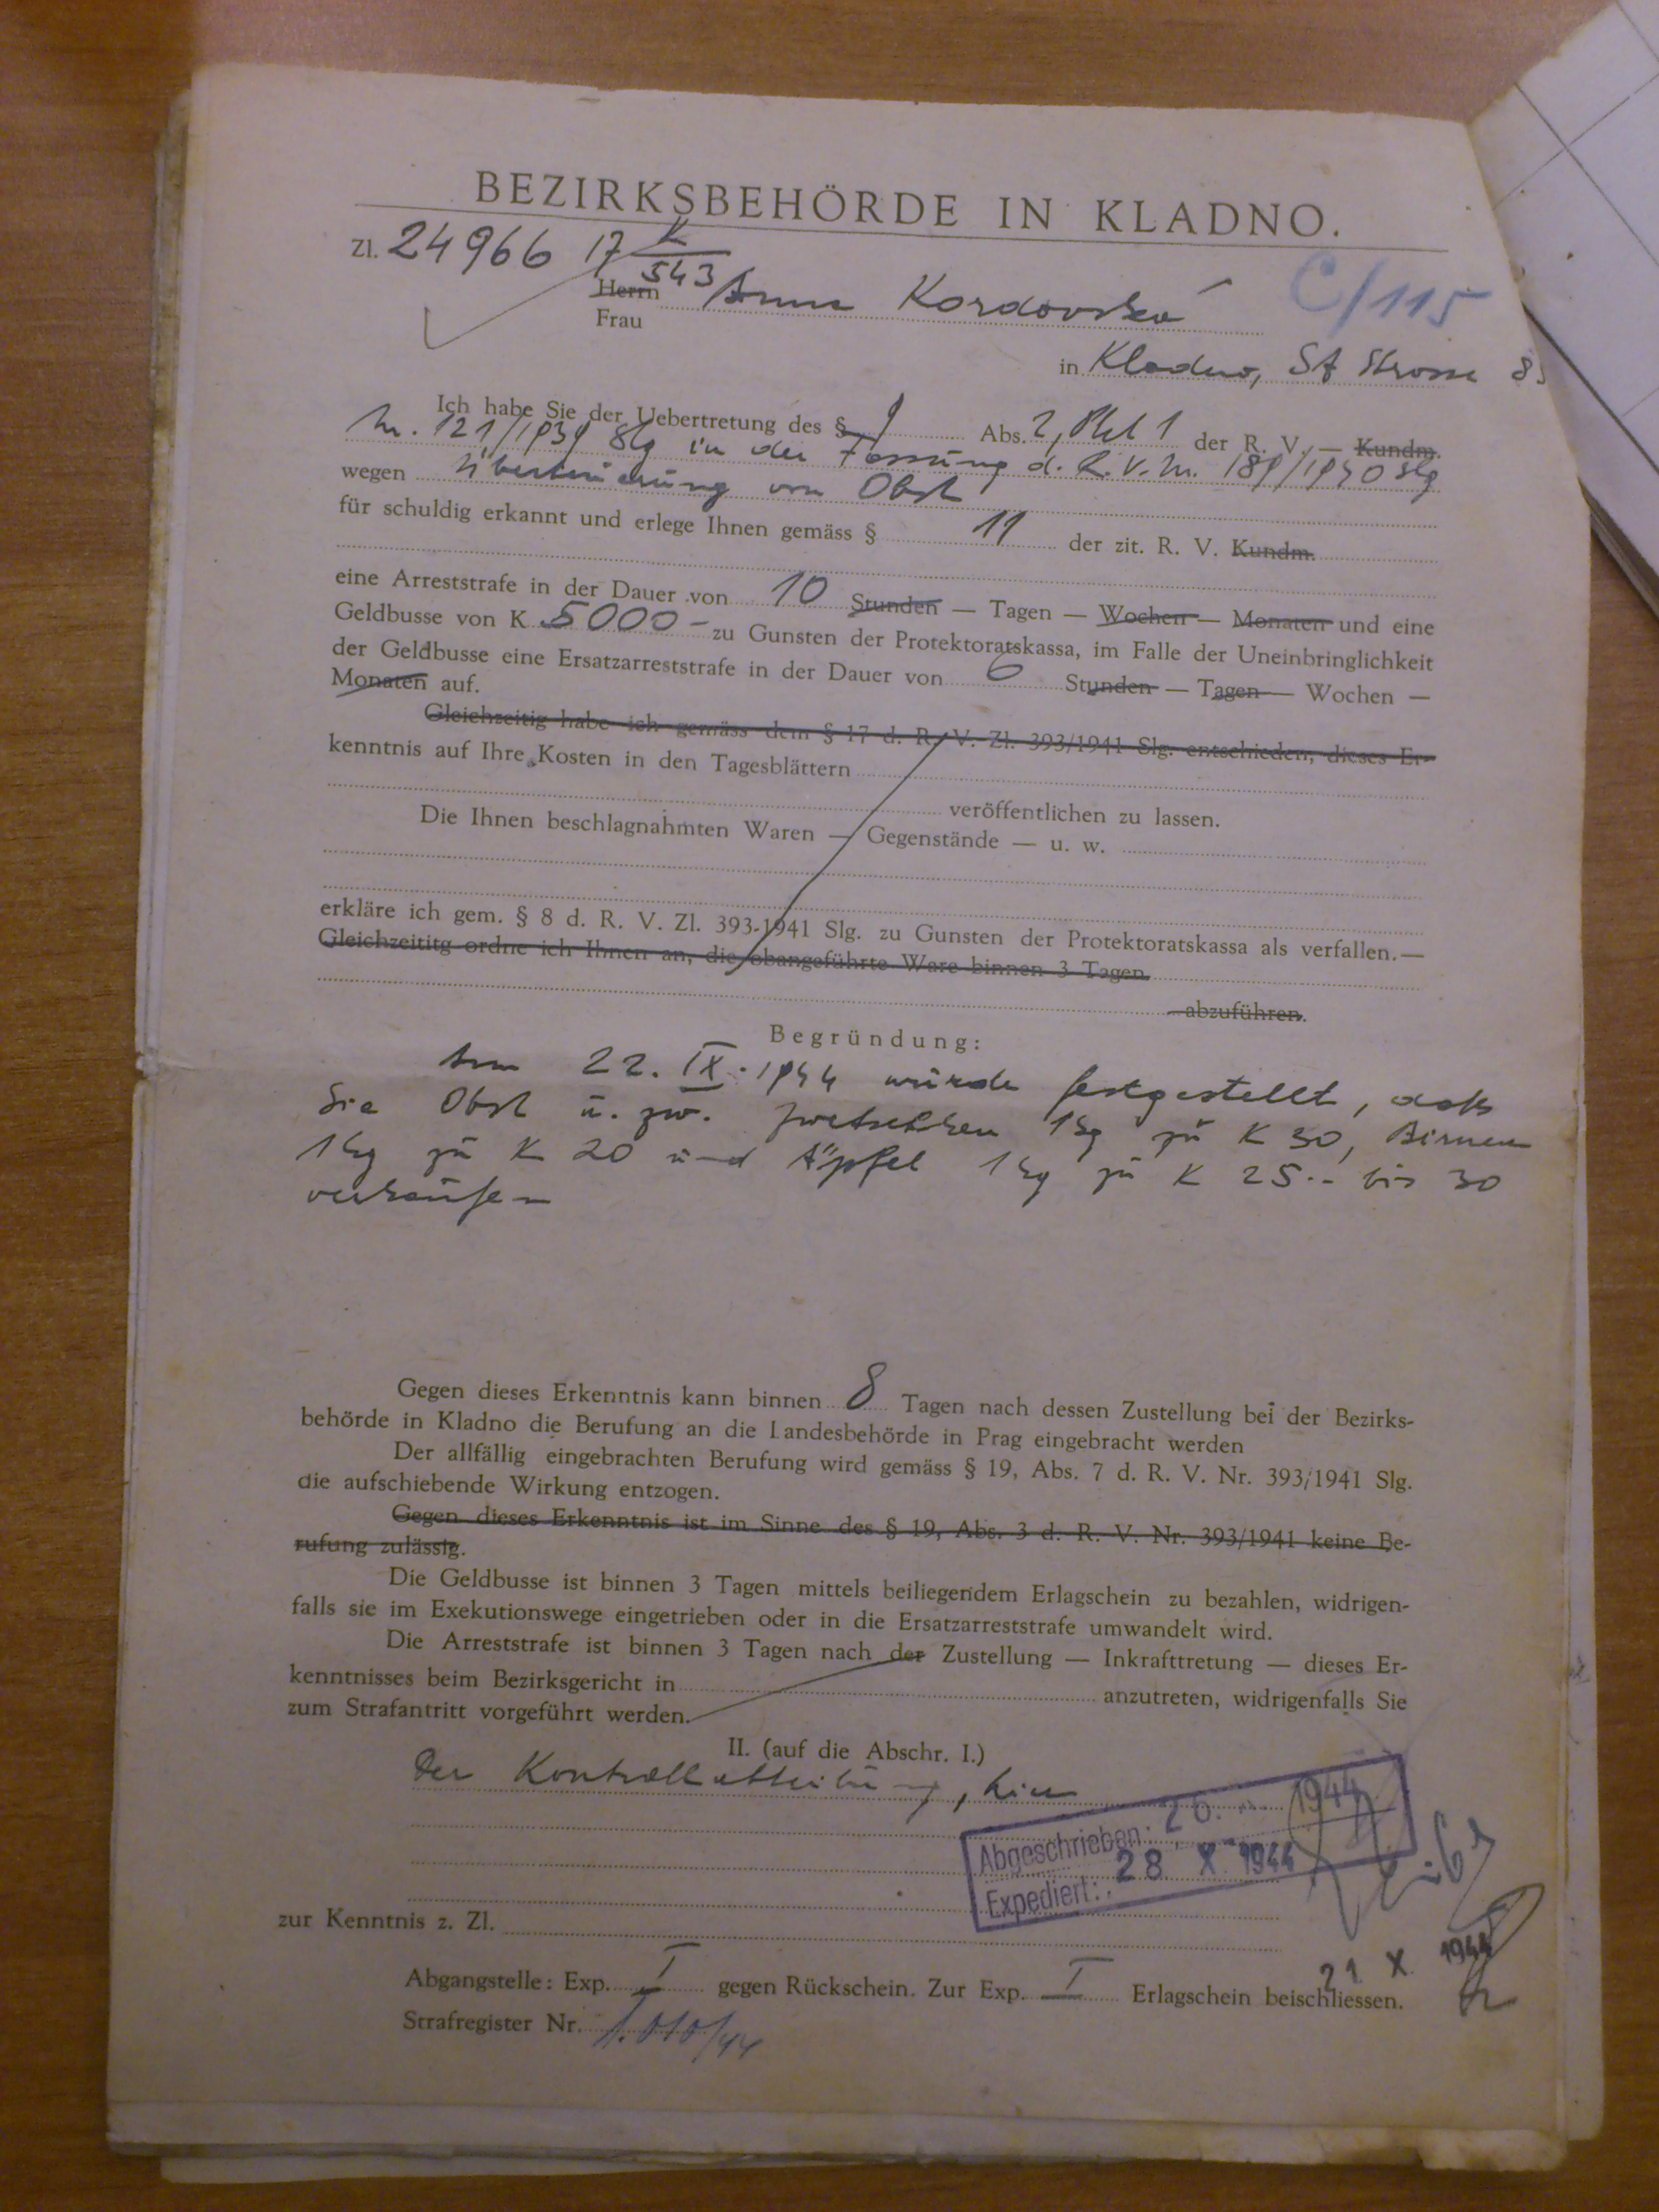 BEZIRKSBEHÖRDE IN KLADNO.
Zl. 24966 17 K/543
Herrn Anna Kordovská C/115
Frau
in Kladno, St Strasse 83
Ich habe Sie der Uebertretung des § 9 Abs. 2, Pkt 1 der R. V. — Kundm.
Nr. 121/1939 Slg in der Fassung d. R. V. Nr. 189/1940 Slg
wegen Überteuerung von Obst
für schuldig erkannt und erlege Ihnen gemäss § 11 der zit. R. V. Kundm.
eine Arreststrafe in der Dauer von 10 Stunden — Tagen — Wochen — Monaten und eine
Geldbusse von K 5000- zu Gunsten der Protektoratskassa, im Falle der Uneinbringlichkeit
der Geldbusse eine Ersatzarreststrafe in der Dauer von 6 Stunden — Tagen — Wochen —
Monaten auf.
Gleichzeitig habe ich gemäss dem § 17 d. R. V. Zl. 393/1941 Slg. entschieden, dieses Er-
kenntnis auf Ihre Kosten in den Tagesblättern
veröffentlichen zu lassen.
Die Ihnen beschlagnahmten Waren — Gegenstände — u. w.
erkläre ich gem. § 8 d. R. V. Zl. 393-1941 Slg. zu Gunsten der Protektoratskassa als verfallen.—
Gleichzeititg ordne ich Ihnen an, die obangeführte Ware binnen 3 Tagen
abzuführen.
Begründung:
Am 22. IX. 1944 wurde festgestellt, dass
Sie Obst u. zw. Zwetschken 1 kg zu K 30, Birnen
1 kg zu K 20 und Äpfel 1 kg zu K 25.- bis 30
verkaufen
Gegen dieses Erkenntnis kann binnen 8 Tagen nach dessen Zustellung bei der Bezirks-
behörde in Kladno die Berufung an die Landesbehörde in Prag eingebracht werden
Der allfällig eingebrachten Berufung wird gemäss § 19, Abs. 7 d. R. V. Nr. 393/1941 Slg.
die aufschiebende Wirkung entzogen.
Gegen dieses Erkenntnis ist im Sinne des § 19, Abs. 3 d. R. V. Nr. 393/1941 keine Be-
rufung zulässig.
Die Geldbusse ist binnen 3 Tagen mittels beiliegendem Erlagschein zu bezahlen, widrigen-
falls sie im Exekutionswege eingetrieben oder in die Ersatzarreststrafe umwandelt wird.
Die Arreststrafe ist binnen 3 Tagen nach der Zustellung — Inkrafttretung — dieses Er-
kenntnisses beim Bezirksgericht in anzutreten, widrigenfalls Sie
zum Strafantritt vorgeführt werden.
II. (auf die Abschr. I.)
Der Kontrollabteilung, hier
Abgeschrieben: 26. 1944
Expediert: 28 X 1944
zur Kenntnis z. Zl.
21 X 1944
Abgangstelle: Exp. I gegen Rückschein. Zur Exp. I Erlagschein beischliessen.
Strafregister Nr. 1.010/44